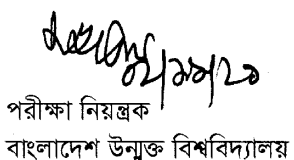 পরীক্ষা নিয়ন্ত্রক
বাংলাদেশ উন্মুক্ত বিশ্ববিদ্যালয়